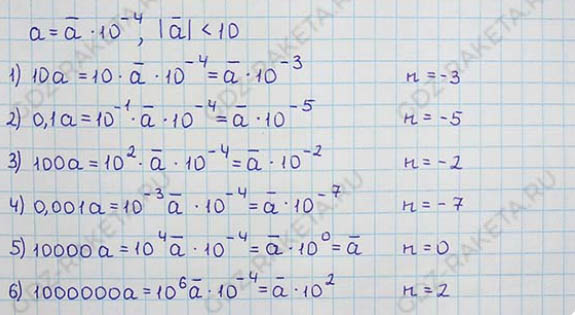 a = a̅ · 10⁻⁴, |a̅| < 10
1) 10a = 10 · a̅ · 10⁻⁴ = a̅ · 10⁻³ n = -3
2) 0,1a = 10⁻¹ · a̅ · 10⁻⁴ = a̅ · 10⁻⁵ n = -5
3) 100a = 10² · a̅ · 10⁻⁴ = a̅ · 10⁻² n = -2
4) 0,001a = 10⁻³ a̅ · 10⁻⁴ = a̅ · 10⁻⁷ n = -7
5) 10000a = 10⁴ a̅ · 10⁻⁴ = a̅ · 10⁰ = a̅ n = 0
6) 1000000a = 10⁶ a̅ · 10⁻⁴ = a̅ · 10² n = 2
GDZ-RAKETA.RU